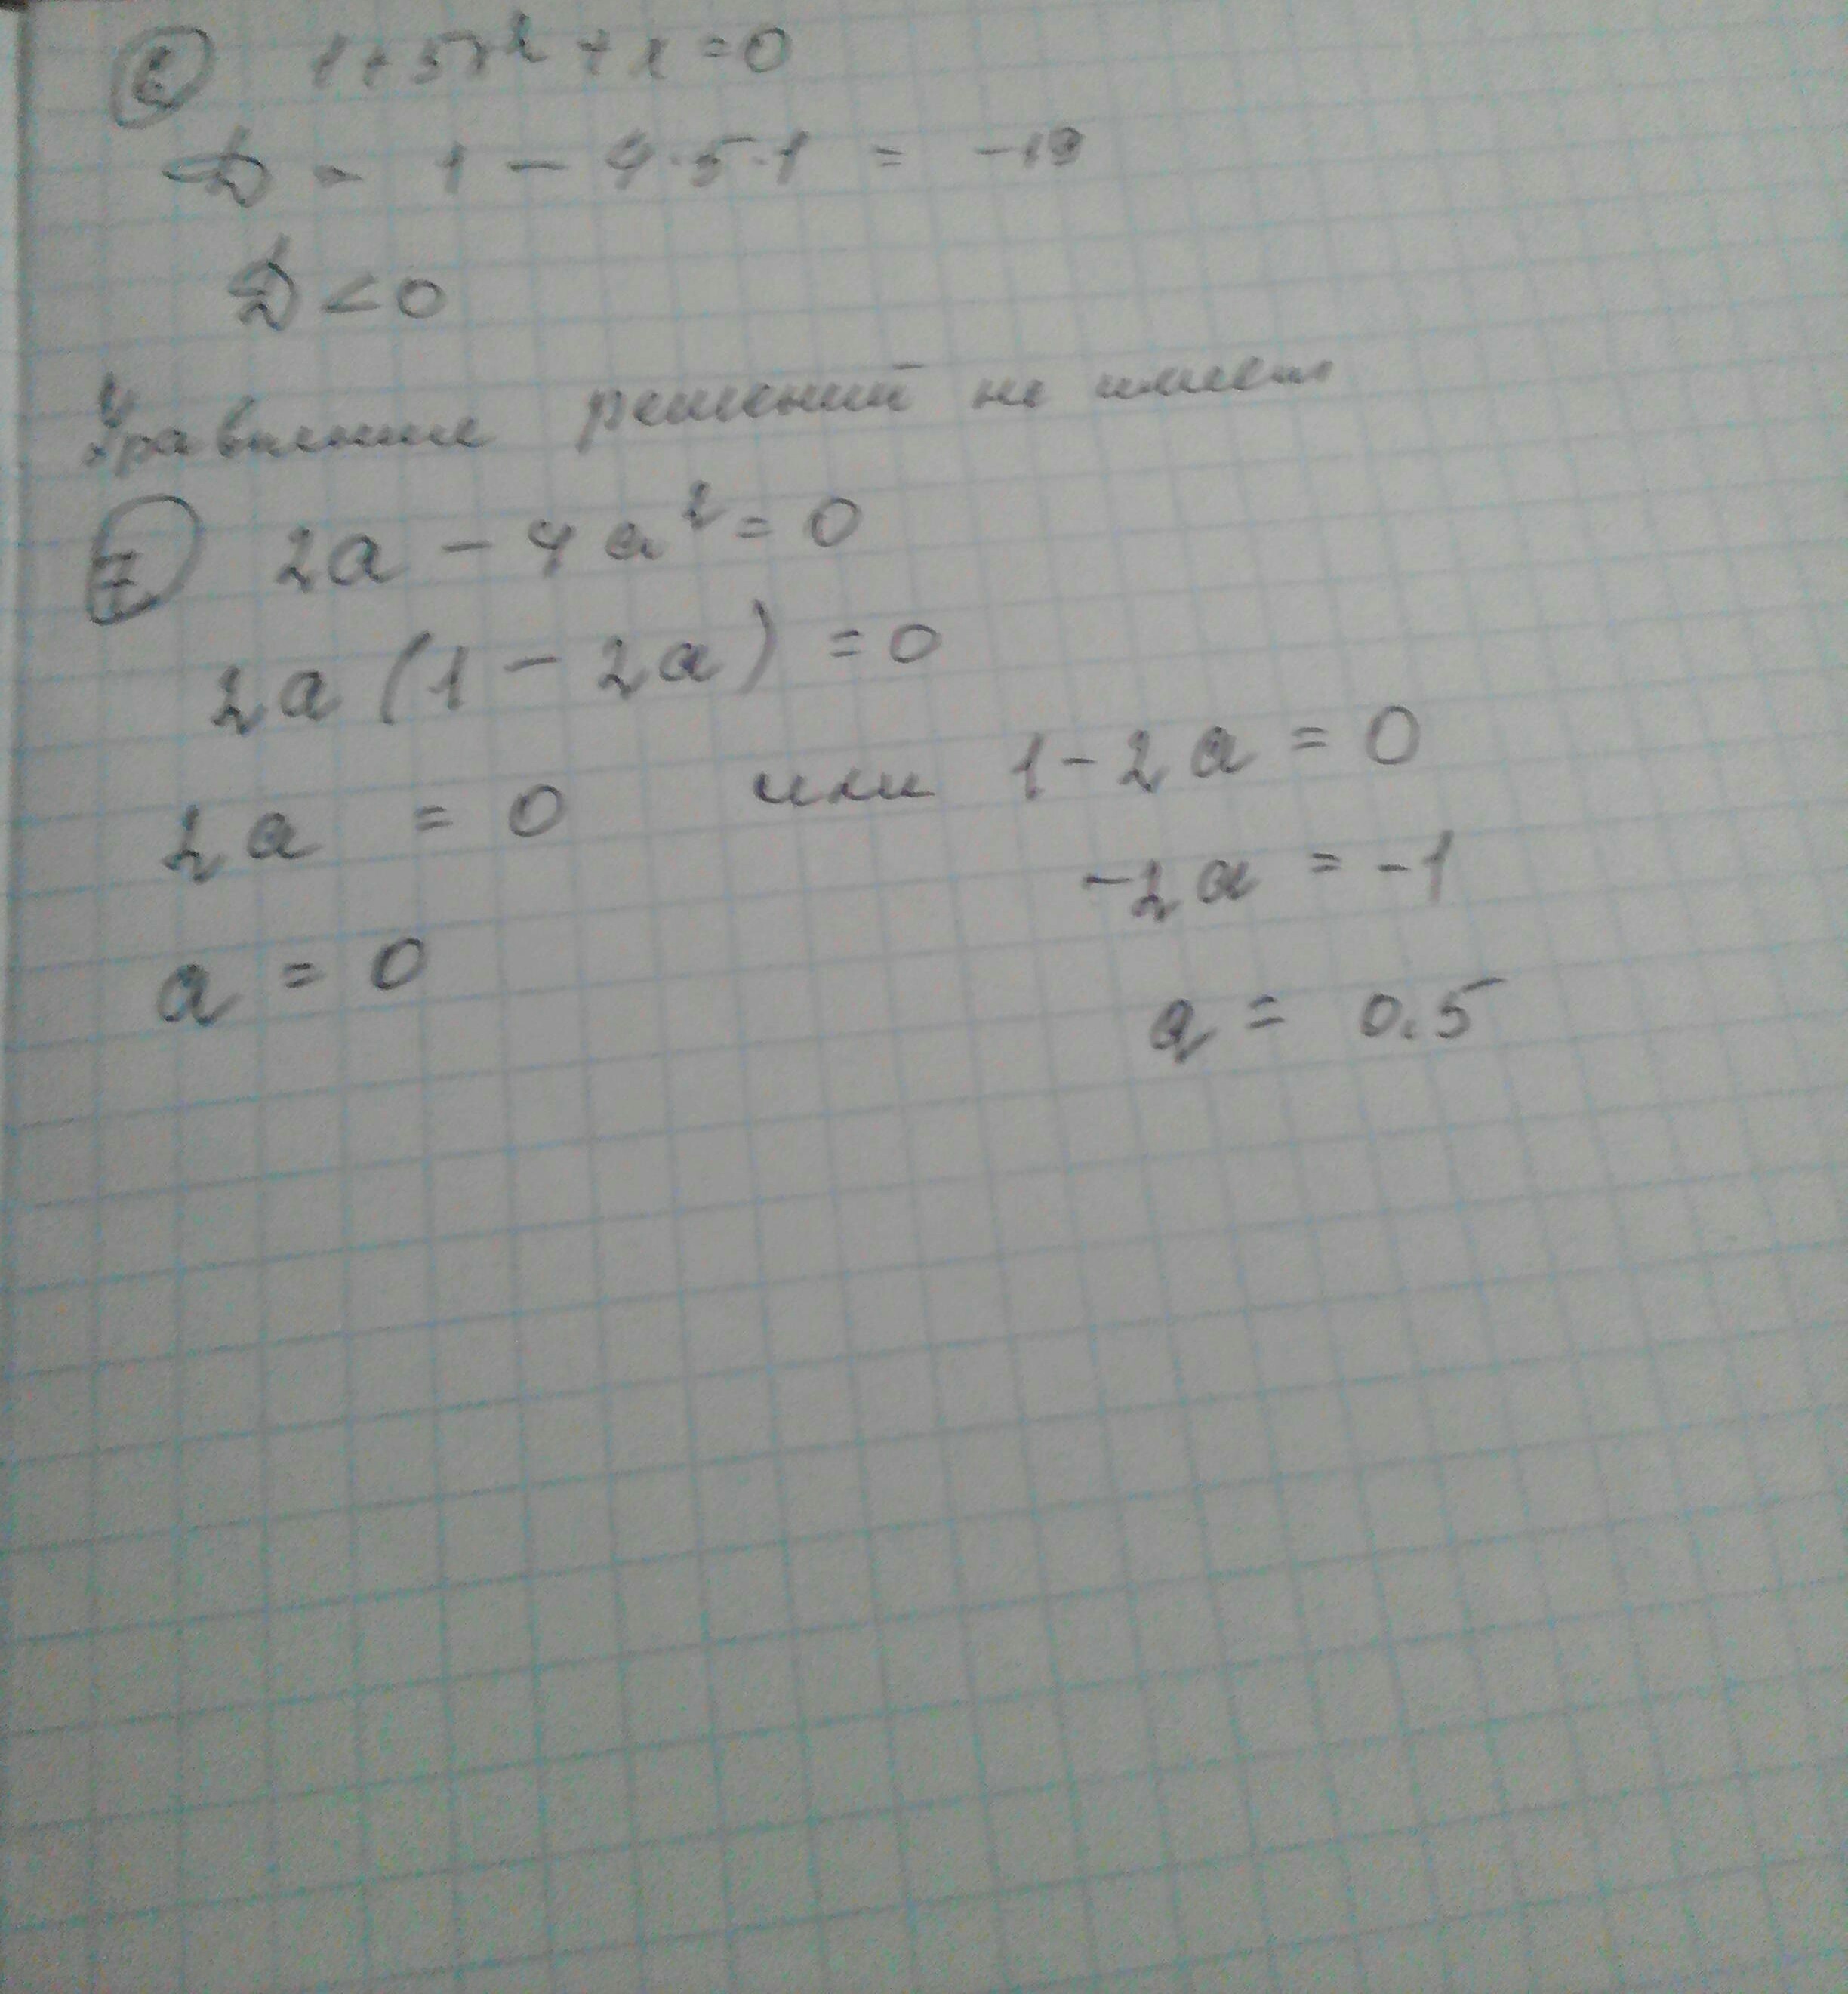 1+5x²+x=0
D = 1 - 4·5·1 = -19
D<0
Уравнение решений не имеет
7 2a - 4a² = 0
2a(1-2a) = 0
2a = 0 или 1-2a = 0
-2a = -1
a = 0
a = 0.5